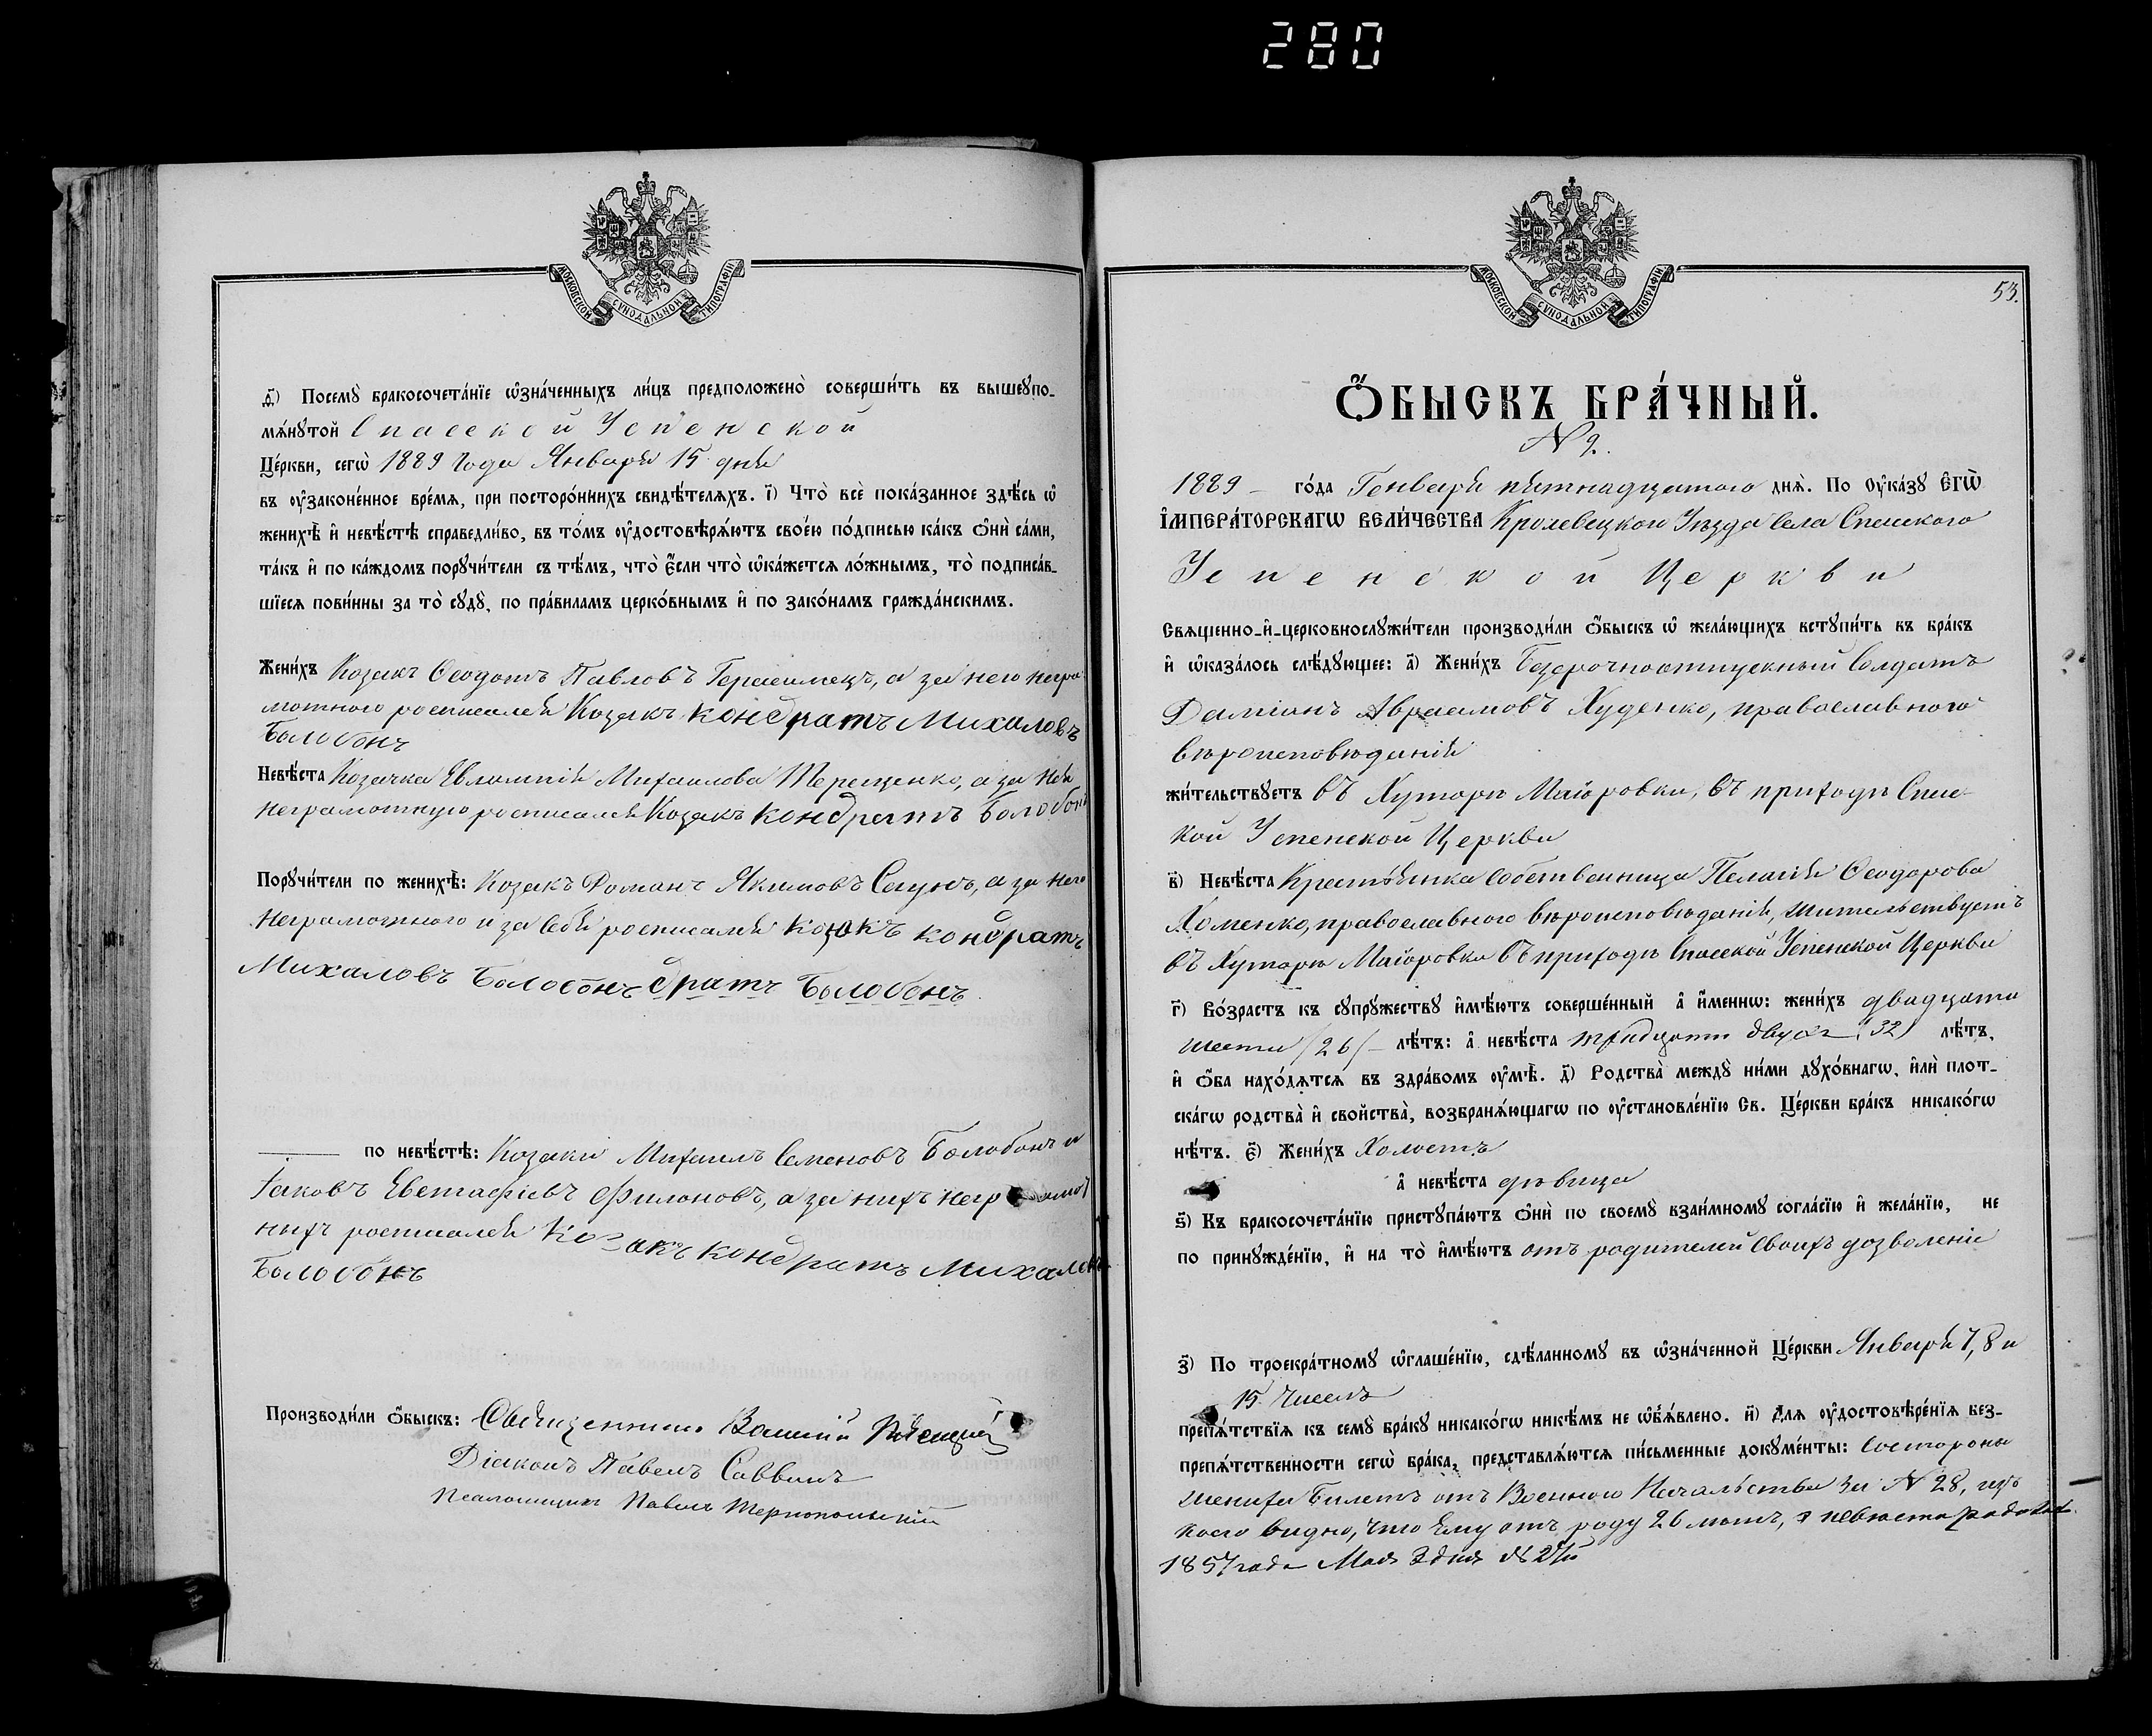 280
МОСКОВСКОЙ СѴНОДАЛЬНОЙ ТИПОГРАФІИ
д҃) Посемꙋ̀ бракосочета́нїе ѡ҆зна́ченныхъ ли́цъ предположено̀ соверши́ть въ вышеꙋпо-
мѧ́нꙋтой Спасской Успенской
Це́ркви, сегѡ̀ 1889 года Января 15 дня
въ ᲂу҆законе́нное вре́мѧ, при посторо́ннихъ свидѣ́телѧхъ. і҃) Что̀ всѐ пока́занное здѣ́сь ѡ҆
женихѣ̀ и҆ невѣ́стѣ справедли́во, въ то́мъ ᲂу҆достовѣрѧ́ютъ свое́ю по́дписью ка́къ ѻ҆нѝ са́ми,
та́къ и҆ по ка́ждомъ порꙋчи́тели съ тѣ́мъ, что̀ є҆́сли что̀ ѡ҆ка́жетсѧ ло́жнымъ, то̀ подписа́в-
шїесѧ пови́нны за то̀ сꙋдꙋ̀, по пра́виламъ церко́внымъ и҆ по зако́намъ гражда́нскимъ.
Жени́хъ Козакъ Ѳеодотъ Павловъ Герасимецъ, а за него негра-
мотнаго росписался Козакъ Кондратъ Михаловъ
Болобонъ
Невѣ́ста Козачка Евлампія Михаилова Терещенко, а за нея
неграмотную росписался Козакъ Кондратъ Болобонъ
Порꙋчи́тели по женихѣ̀: Козакъ Романъ Якимовъ а за него
неграмотного и за себя росписался козакъ кондратъ
Михаловъ Болобонъ братъ Болобонъ
по невѣ́стѣ: Козаки Михаилъ Семеновъ Болобонъ и
Іаковъ Евстафіевъ Филоновъ, а за нихъ неграмот
ныхъ росписался Козакъ кондратъ Михаловъ
Болобонъ
Производи́ли ѻ҆́быскъ: Священникъ Василій
Діаконъ Павелъ Саввинъ
Псаломщикъ Павелъ Тернопольскій
МОСКОВСКОЙ СѴНОДАЛЬНОЙ ТИПОГРАФІИ
53.
Ѻ҆́БЫСКЪ БРА́ЧНЫЙ.
№ 9.
1889 – го́да Генваря пятнадцатого днѧ̀. По ᲂу҆ка́зꙋ Є҆ГѠ̀
І҆МПЕРА́ТОРСКАГѠ ВЕЛИ́ЧЕСТВА Кролевецкого Уѣзда села Спаского
Успенской Церкви
Свѧщенно-и҆-церковнослꙋжи́тели производи́ли ѻ҆́быскъ ѡ҆ жела́ющихъ встꙋпи́ть въ бра́къ
и҆ ѡ҆каза́лось слѣ́дꙋющее: а҃) Жени́хъ Безсрочноотпускный Солдатъ
Даміанъ Авраамовъ Худенко, православного
вѣроисповѣданія
жи́тельствꙋетъ въ Хуторѣ Маіоровки, въ приходѣ Спас-
кой Успенской Церкви
в҃) Невѣ́ста Крестьянка собственница Пелагія Ѳеодорова
Хоменко, православного вѣроисповѣданія, жительствуетъ
въ Хуторѣ Маіоровки въ приходѣ Спасской Успенской Церкви
г҃) Во́зрастъ къ сꙋпрꙋ́жествꙋ и҆мѣ́ютъ соверше́нный а҆ и҆́меннѡ: жени́хъ двадцати
шести /26/ – лѣ́тъ: а҆ невѣ́ста тридцати двухъ (32) лѣ́тъ,
и҆ ѻ҆́ба нахо́дѧтсѧ въ здра́вомъ ᲂу҆мѣ̀. д҃) Родства̀ междꙋ ни́ми дꙋхо́внагѡ, и҆лѝ плот-
ска́гѡ родства̀ и҆ свойства̀, возбранѧ́ющагѡ по ᲂу҆становле́нїю Св. Це́ркви бра́къ никако́гѡ
нѣ́тъ. є҃) Жени́хъ Холостъ
а҆ невѣ́ста дѣвица
ѕ҃) Къ бракосочета́нїю пристꙋпа́ютъ ѻ҆нѝ по своемꙋ̀ взаи́мномꙋ согла́сїю и҆ жела́нїю, не
по принꙋжде́нїю, и҆ на то̀ и҆мѣ́ютъ отъ родителей своихъ дозволеніе
з҃) По троекра́тномꙋ ѡ҆глаше́нїю, сдѣ́ланномꙋ въ ѡ҆зна́ченной Це́ркви Января 7, 8 и
15 чиселъ
препѧ́тствїѧ къ семꙋ̀ бра́кꙋ никако́гѡ никѣ́мъ не ѡ҆б̾ѧ́влено. и҃) Длѧ ᲂу҆достовѣре́нїѧ без-
препѧ́тственности сегѡ̀ бра́ка, представлѧ́ютсѧ пи́сьменные докꙋме́нты: Состороны
жениха Билетъ отъ Военного Начальства за № 28, изъ
коего видно, что Ему отъ роду 26 лѣтъ, а невѣста
1857 года Мая 3 дня №